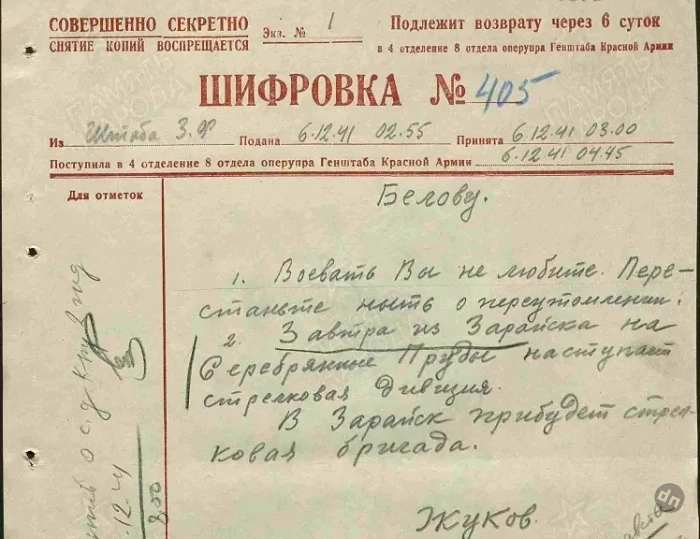 СОВЕРШЕННО СЕКРЕТНО
СНЯТИЕ КОПИЙ ВОСПРЕЩАЕТСЯ
Экз. № 1
Подлежит возврату через 6 суток
в 4 отделение 8 отдела оперупра Генштаба Красной Армии
ШИФРОВКА № 405
Из Штаба З.Ф Подана 6.12.41 02.55 Принята 6.12.41 03.00
Поступила в 4 отделение 8 отдела оперупра Генштаба Красной Армии 6.12.41 04.45
Для отметок
Белову.
1. Воевать Вы не любите. Пере-
станьте ныть о переутомлении.
2. Завтра из Зарайска на
Серебрянные Пруды наступает
стрелковая дивизия.
В Зарайск прибудет стрел-
ковая бригада.
Жуков.
8.00
dn